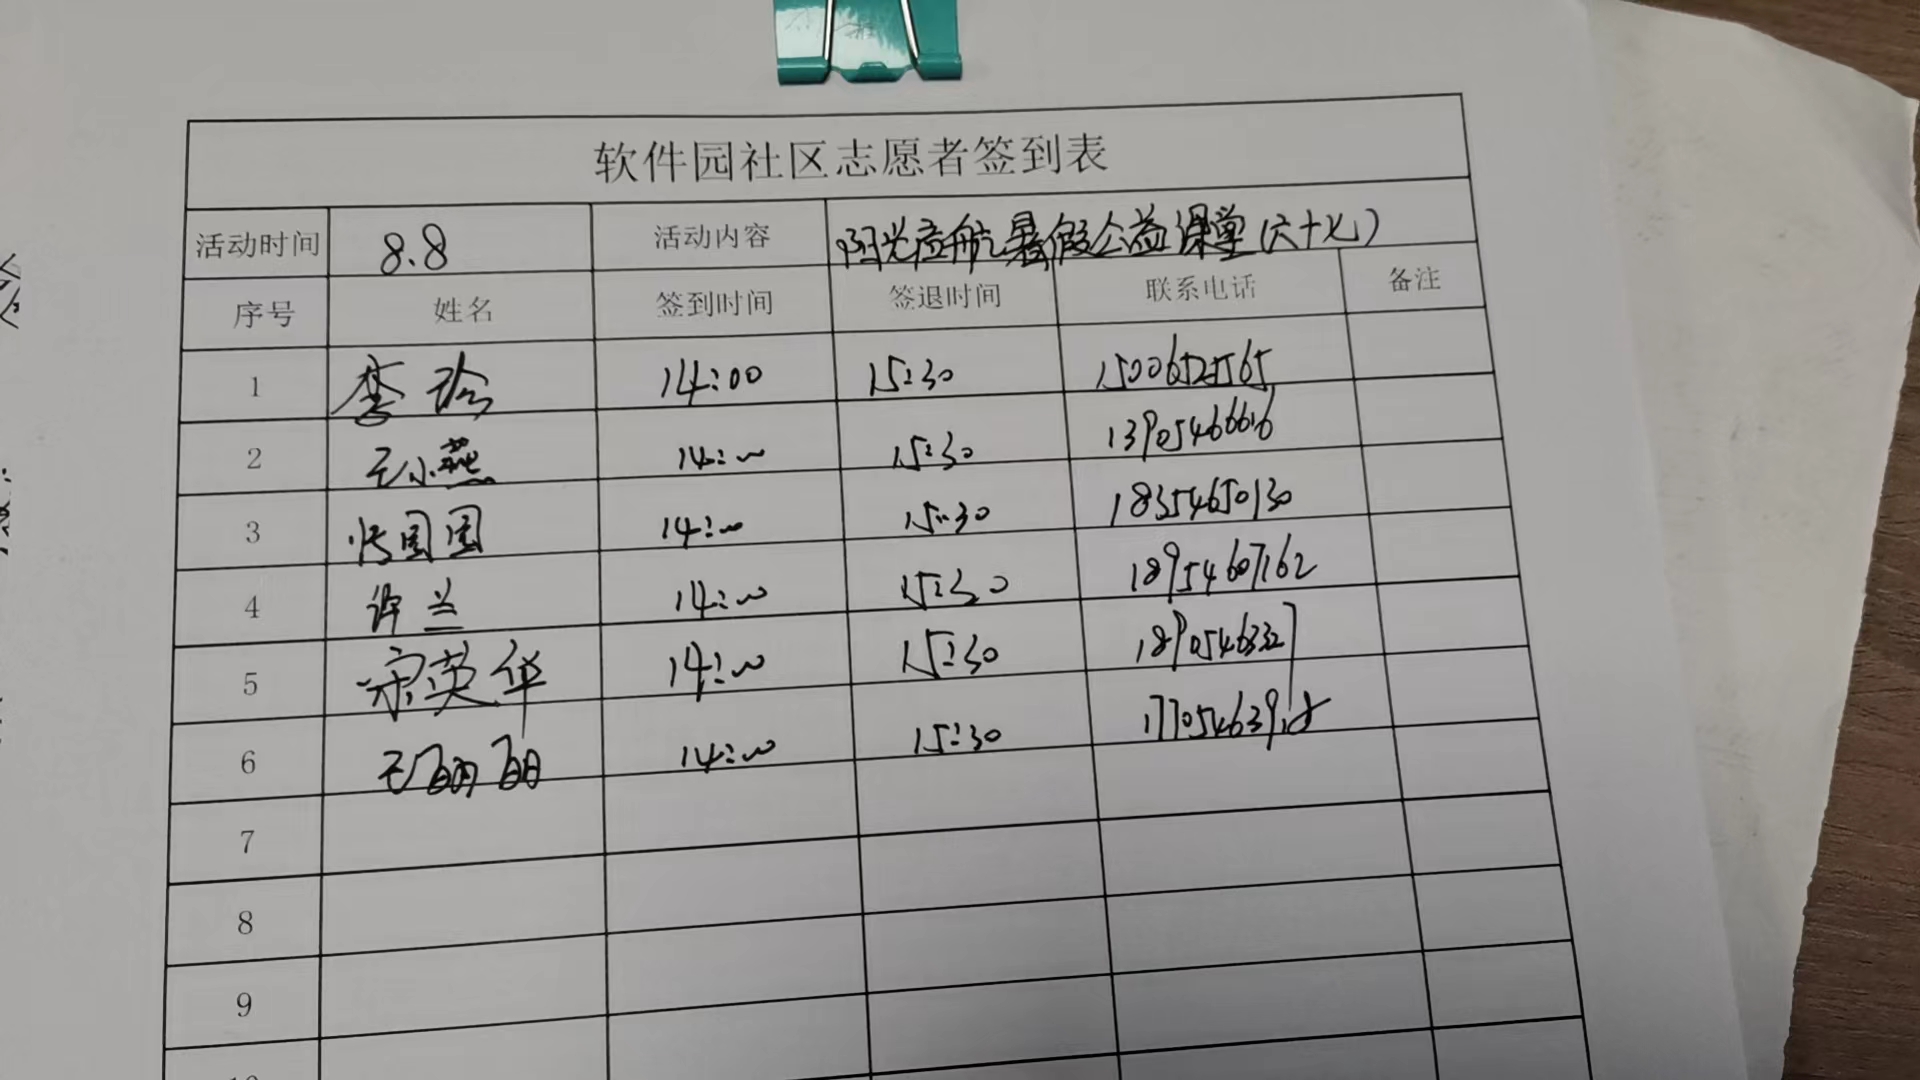 软件园社区志愿者签到表
活动时间 8.8 活动内容 阳光启航暑假公益课堂(六十七)
序号 姓名 签到时间 签退时间 联系电话 备注
1 李玲 14:00 15:30 15006525565
2 王小燕 14:00 15:30 13905466616
3 张圆圆 14:00 15:30 18354650130
4 许兰 14:00 15:30 18954607162
5 宗英华 14:00 15:30 18905463327
6 王丽丽 14:00 15:30
7
8
9
10